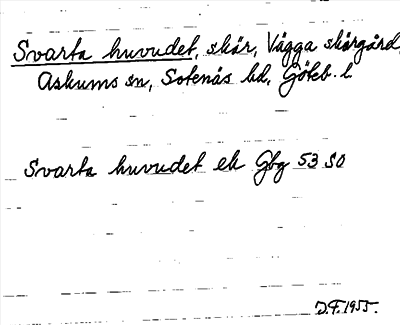 Svarta huvudet, skär, Vägga skärgård,
Askums sn, Sotenäs hd, Göteb. l.
Svarta huvudet ek Gbg 53 SO
D.F. 1955.